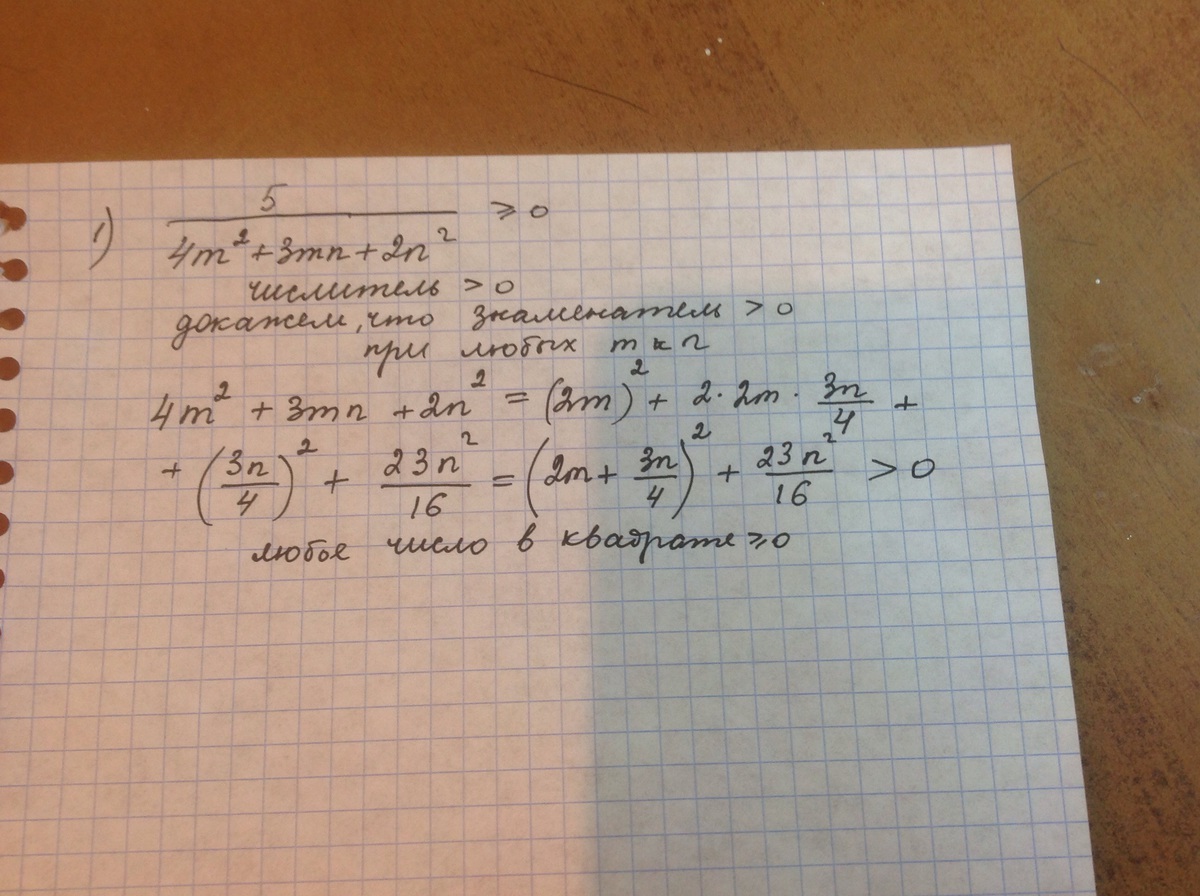 1) 5 / (4m² + 3mn + 2n²) ⩾ 0
числитель > 0
докажем, что знаменатель > 0
при любых m и n
4m² + 3mn + 2n² = (2m)² + 2·2m · 3n/4 +
+ (3n/4)² + 23n²/16 = (2m + 3n/4)² + 23n²/16 > 0
любое число в квадрате ⩾ 0